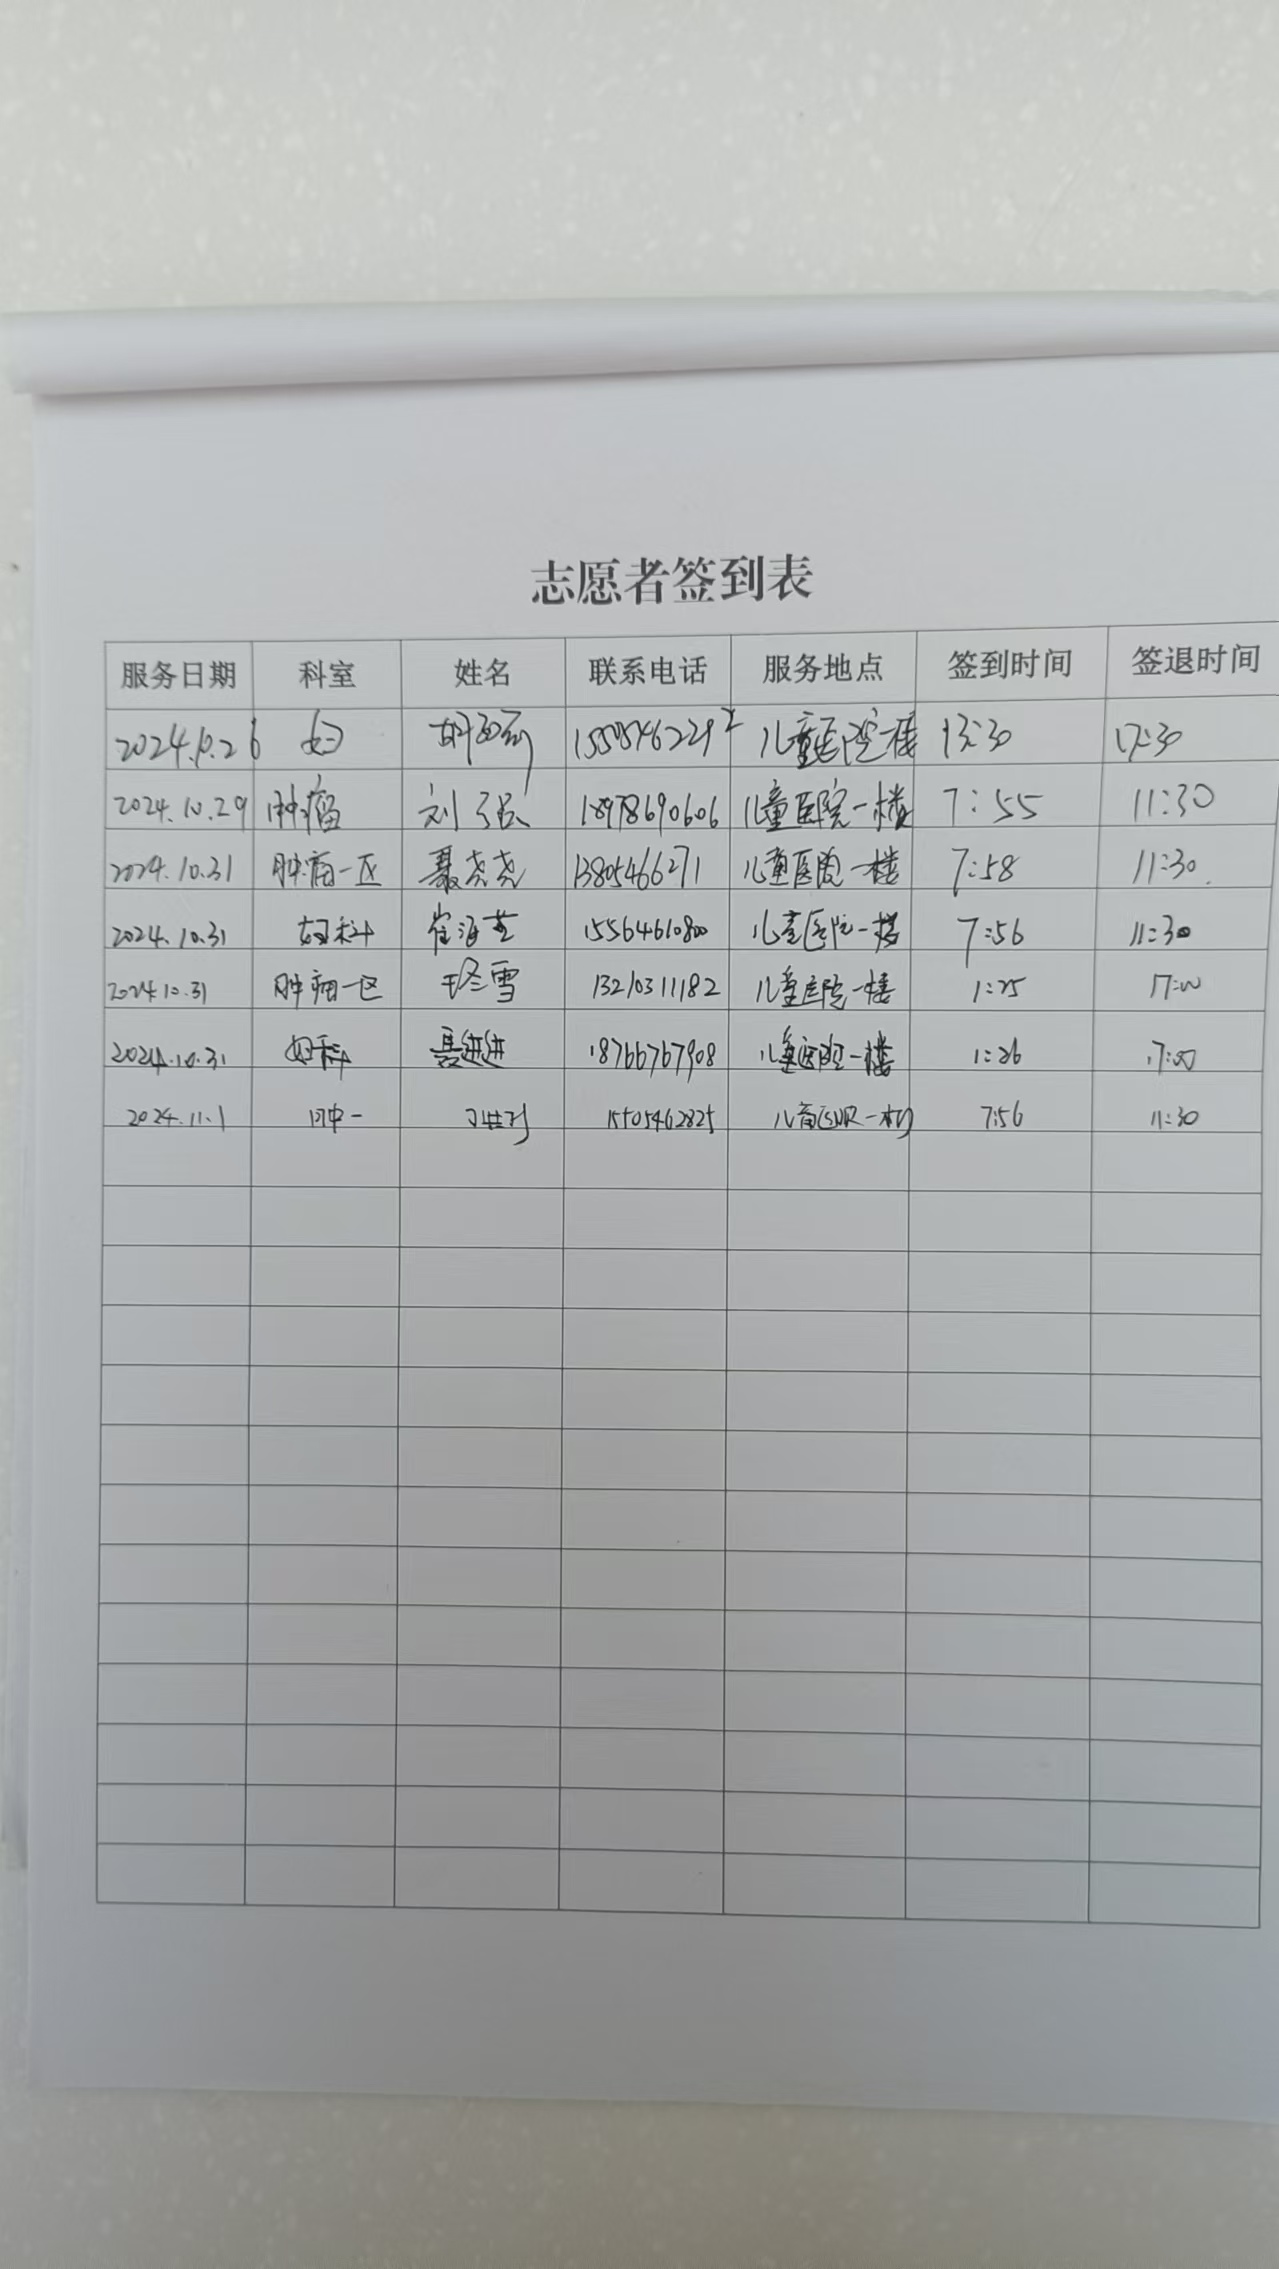 志愿者签到表
服务日期 科室 姓名 联系电话 服务地点 签到时间 签退时间
2024.10.26 妇 儿童医院楼 13:30 17:30
2024.10.29 肿瘤 刘 18978690606 儿童医院一楼 7:55 11:30
2024.10.31 肿瘤一区 聂尧尧 13805466271 儿童医院一楼 7:58 11:30
2024.10.31 妇科 崔海芝 15564610800 儿童医院一楼 7:56 11:30
2024.10.31 肿瘤一区 雪 13210311182 儿童医院一楼 1:25 17:00
2024.10.31 妇科 进进 18766767908 儿童医院一楼 1:26 17:00
2024.11.1 肿一 15505462825 7:56 11:30